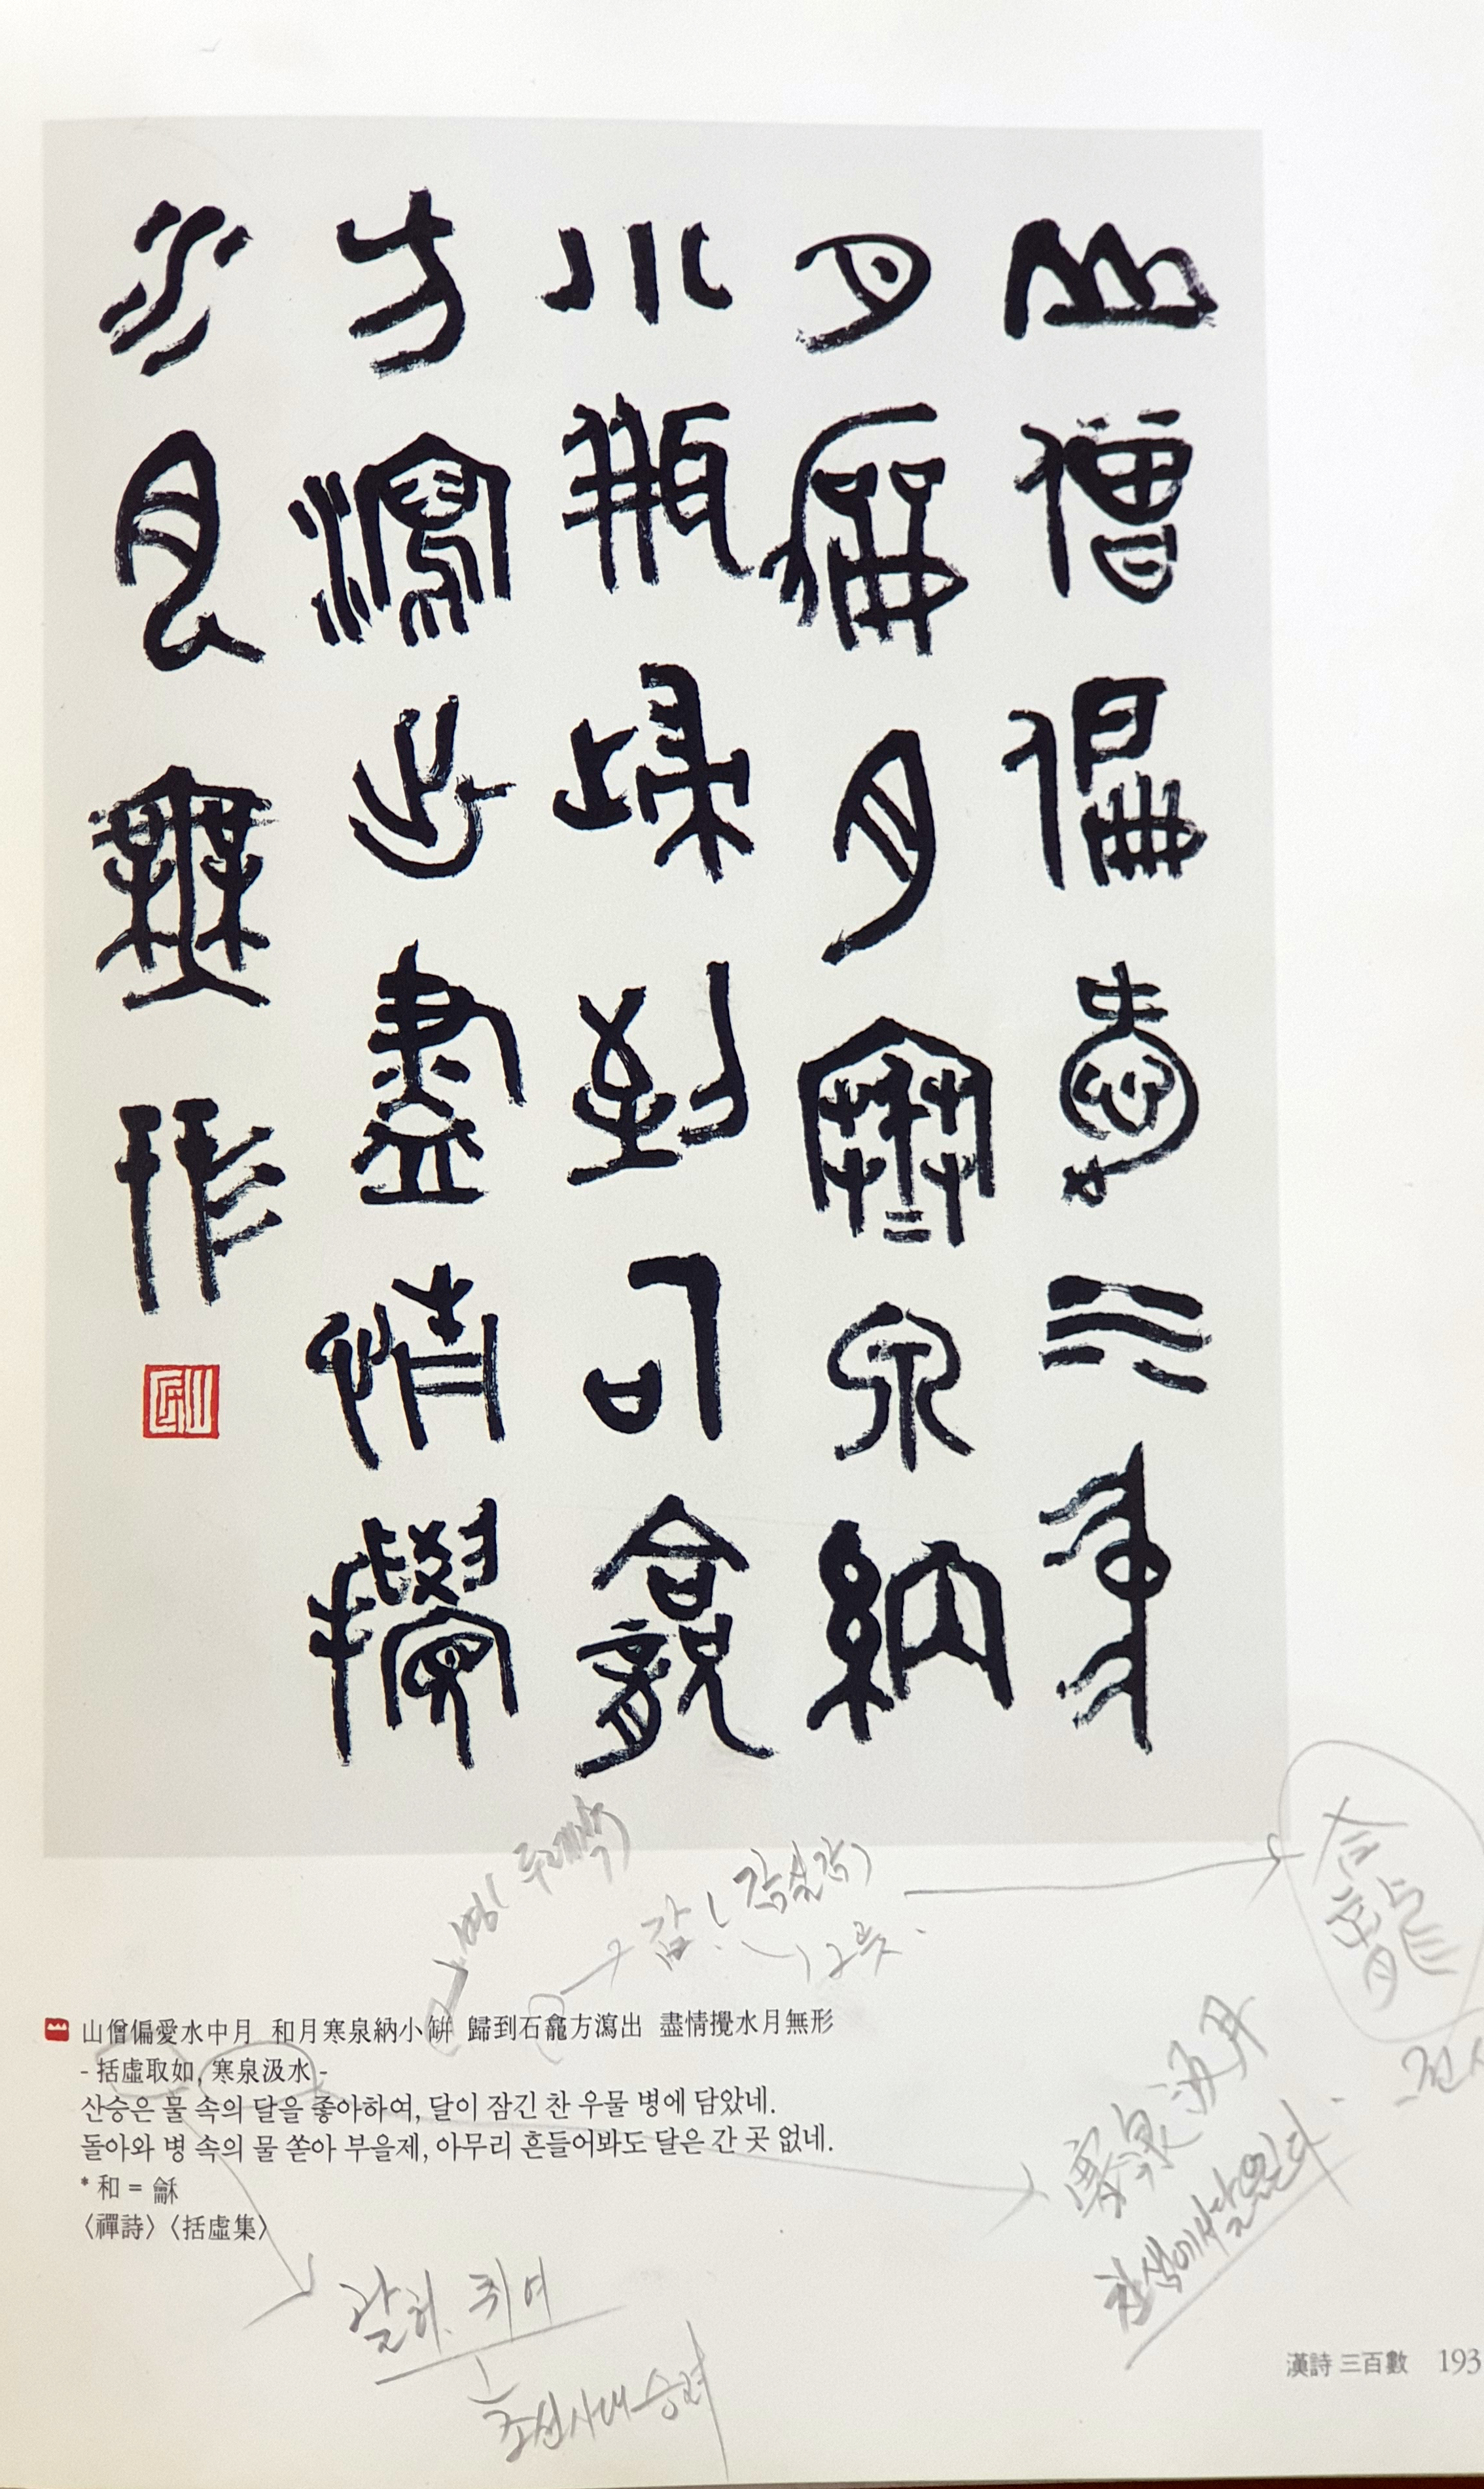 山僧偏愛水中
月龢月寒泉納
小瓶歸到石龕
方瀉出盡情攪
水月無形
병(두레박)
감(감실감)
山僧偏愛水中月 和月寒泉納小缾 歸到石龕方瀉出 盡情攪水月無形
- 括虛取如, 寒泉汲水 -
산승은 물 속의 달을 좋아하여, 달이 잠긴 찬 우물 병에 담았네.
돌아와 병 속의 물 쏟아 부을제, 아무리 흔들어봐도 달은 간 곳 없네.
* 和 = 龢
〈禪詩〉〈括虛集〉
寒泉汲月
찬샘에서 달을 긷다.
괄허 취여
조선시대 승려
漢詩 三百數 193